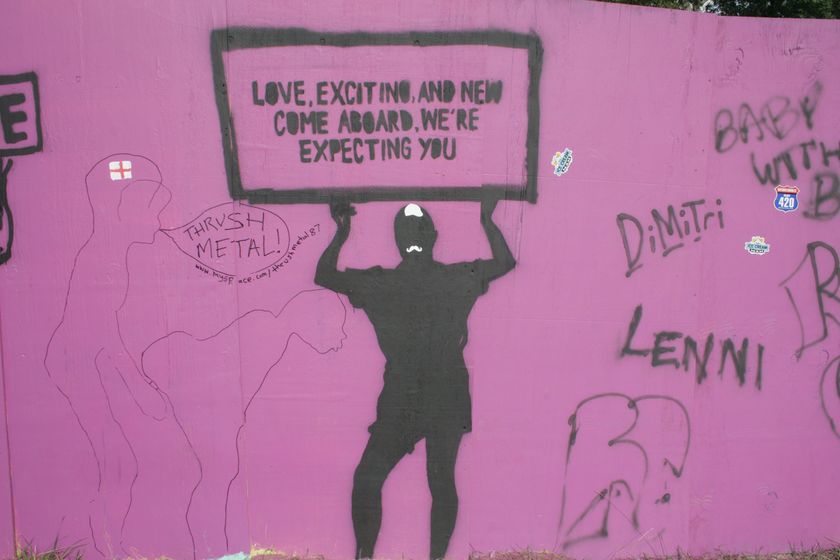 E
LOVE, EXCITING, AND NEW
COME ABOARD, WE'RE
EXPECTING YOU
THRUSH
METAL!
DiMiTri
LENNI
BABY
WITH
B
420